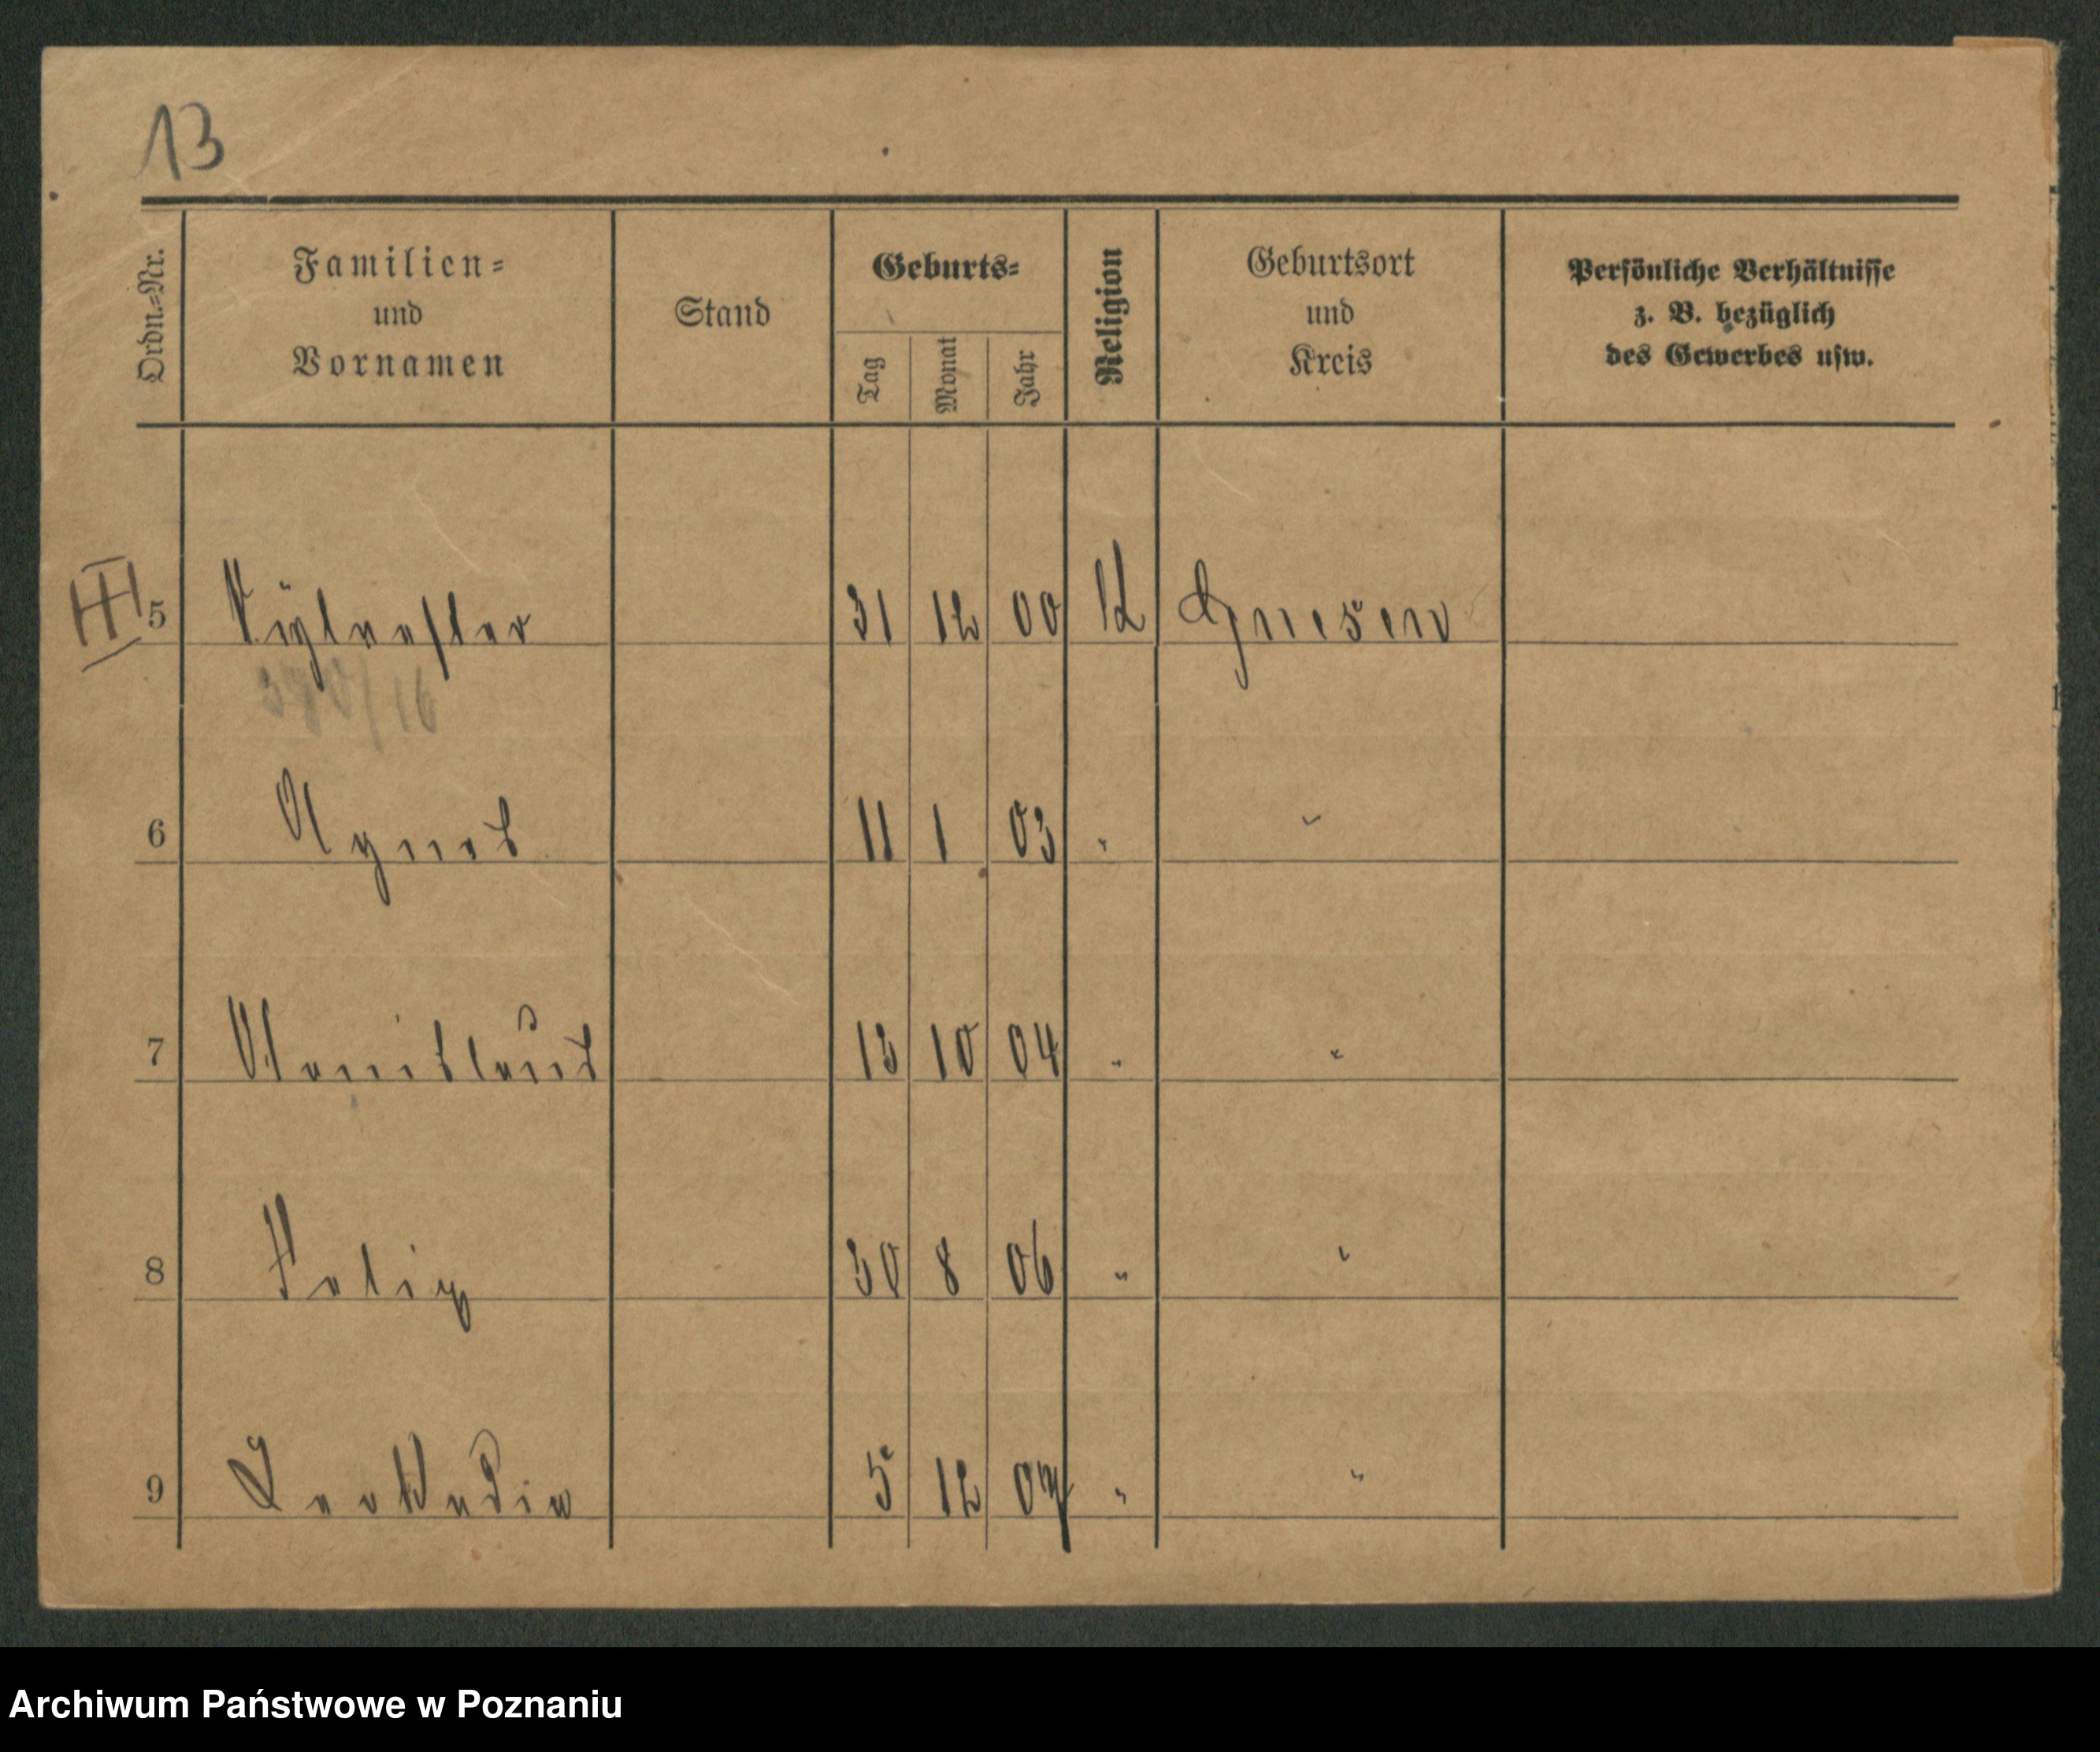 13
Ordn.=Nr.
Familien=
und
Vornamen
Stand
Geburts=
Tag Monat Jahr
Religion
Geburtsort
und
Kreis
Persönliche Verhältnisse
z. B. bezüglich
des Gewerbes usw.
III 5 Sylvester 31 12 00 Gnesen
6 Agnes 11 1 03 " "
7 Stanislaus 13 10 04 " "
8 Felix 30 8 06 " "
9 5 12 07 " "
Archiwum Państwowe w Poznaniu